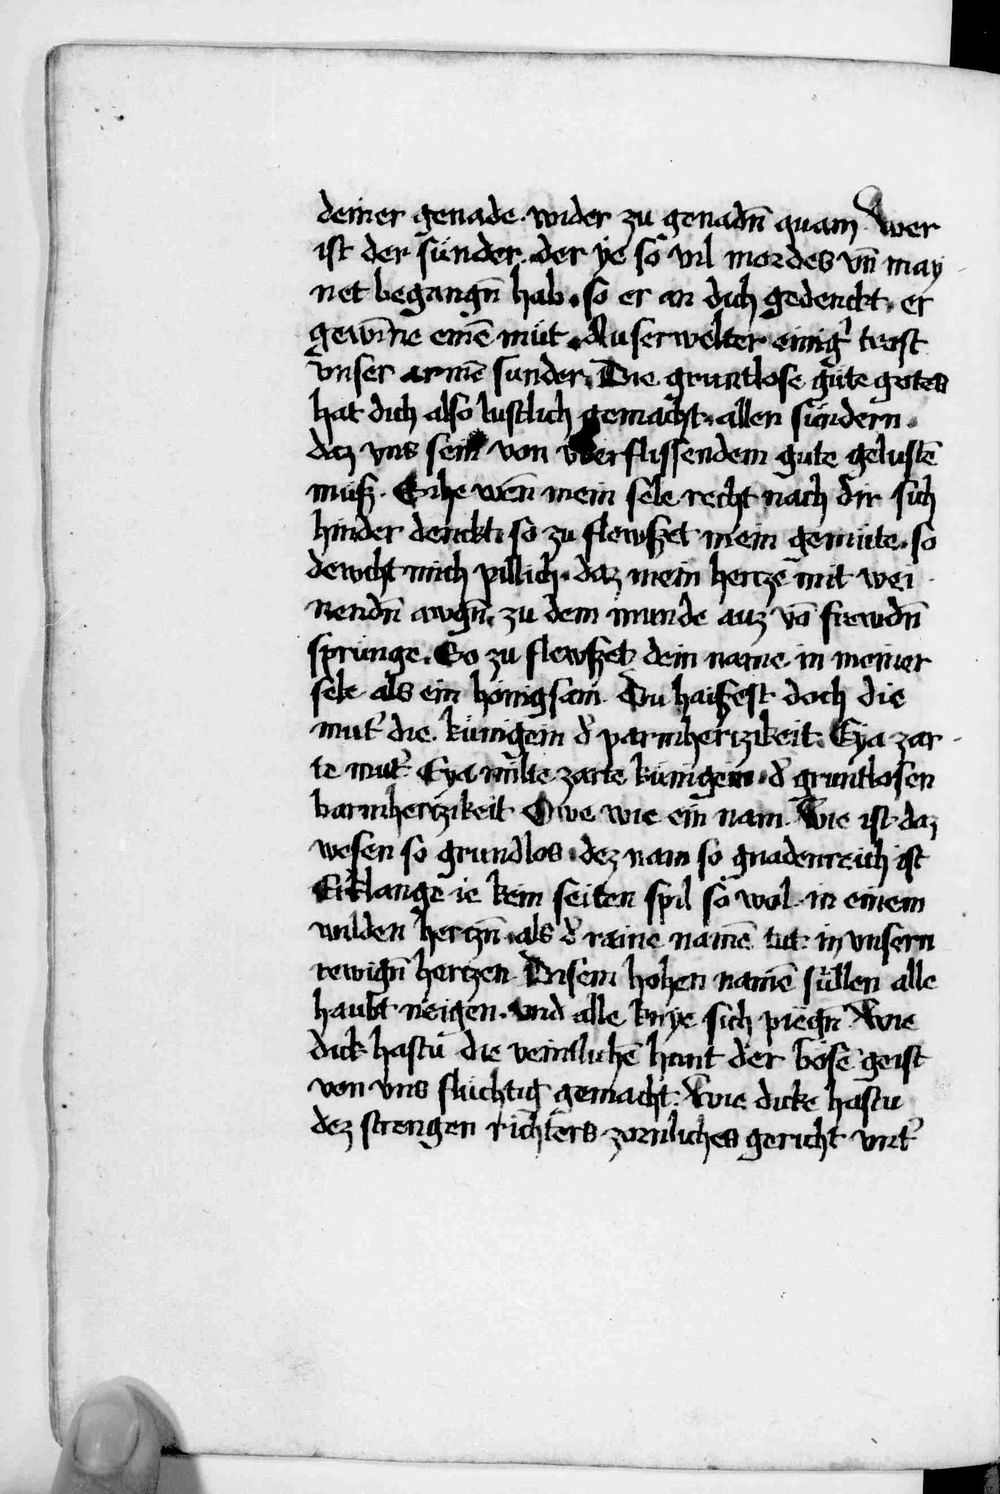 deiner genade. wider zu genadn̄ quam. Wer
ist der sünder. der ye so vil mordes vn̄ may
net begangn̄ hab. so er an dich gedenckt. er
gewīne einē müt. Auserwelter einig' trost
vnser armē sunder. Die gruntlose güte gotes
hat dich also lustlich gemacht. allen sündern.
daz vns sein von vberflissendem gute gelustē
müß. Eche wēn mein sele recht nach dir sich
hinder denckt. so zu flewſzet mein gemüte. so
dewcht mich pillich. daz mein hertze mit wei
nendn̄ awgn̄. zu dem munde auz vō frewdn̄
sprünge. So zu flewſzet dein name. in meiner
sele als ein hönigsaīn. Du haiſzest doch die
mut' die. künigein d' parmhertzikeit. Eya zar
te mut'. Eya milte zarte künigein. d' gruntlosen
barmhertzikeit Owe wie ein nam. Wie ist daz
wesen so grundlos. dez nam so gnadenreich ist
Erklange ie kein seiten spil so wol. in einem
wilden hertzn̄. als d' raine namē tut. in vnsern
rewign̄ hertzen. Disem hohen namē süllen alle
haubt neigen. vnd alle knye sich piegn̄. Wie
dick hastu die veintlichē hant der bösē geist
von vns flüchtig gemacht. Wie dicke hastu
dez strengen richters zornliches gericht vnt'